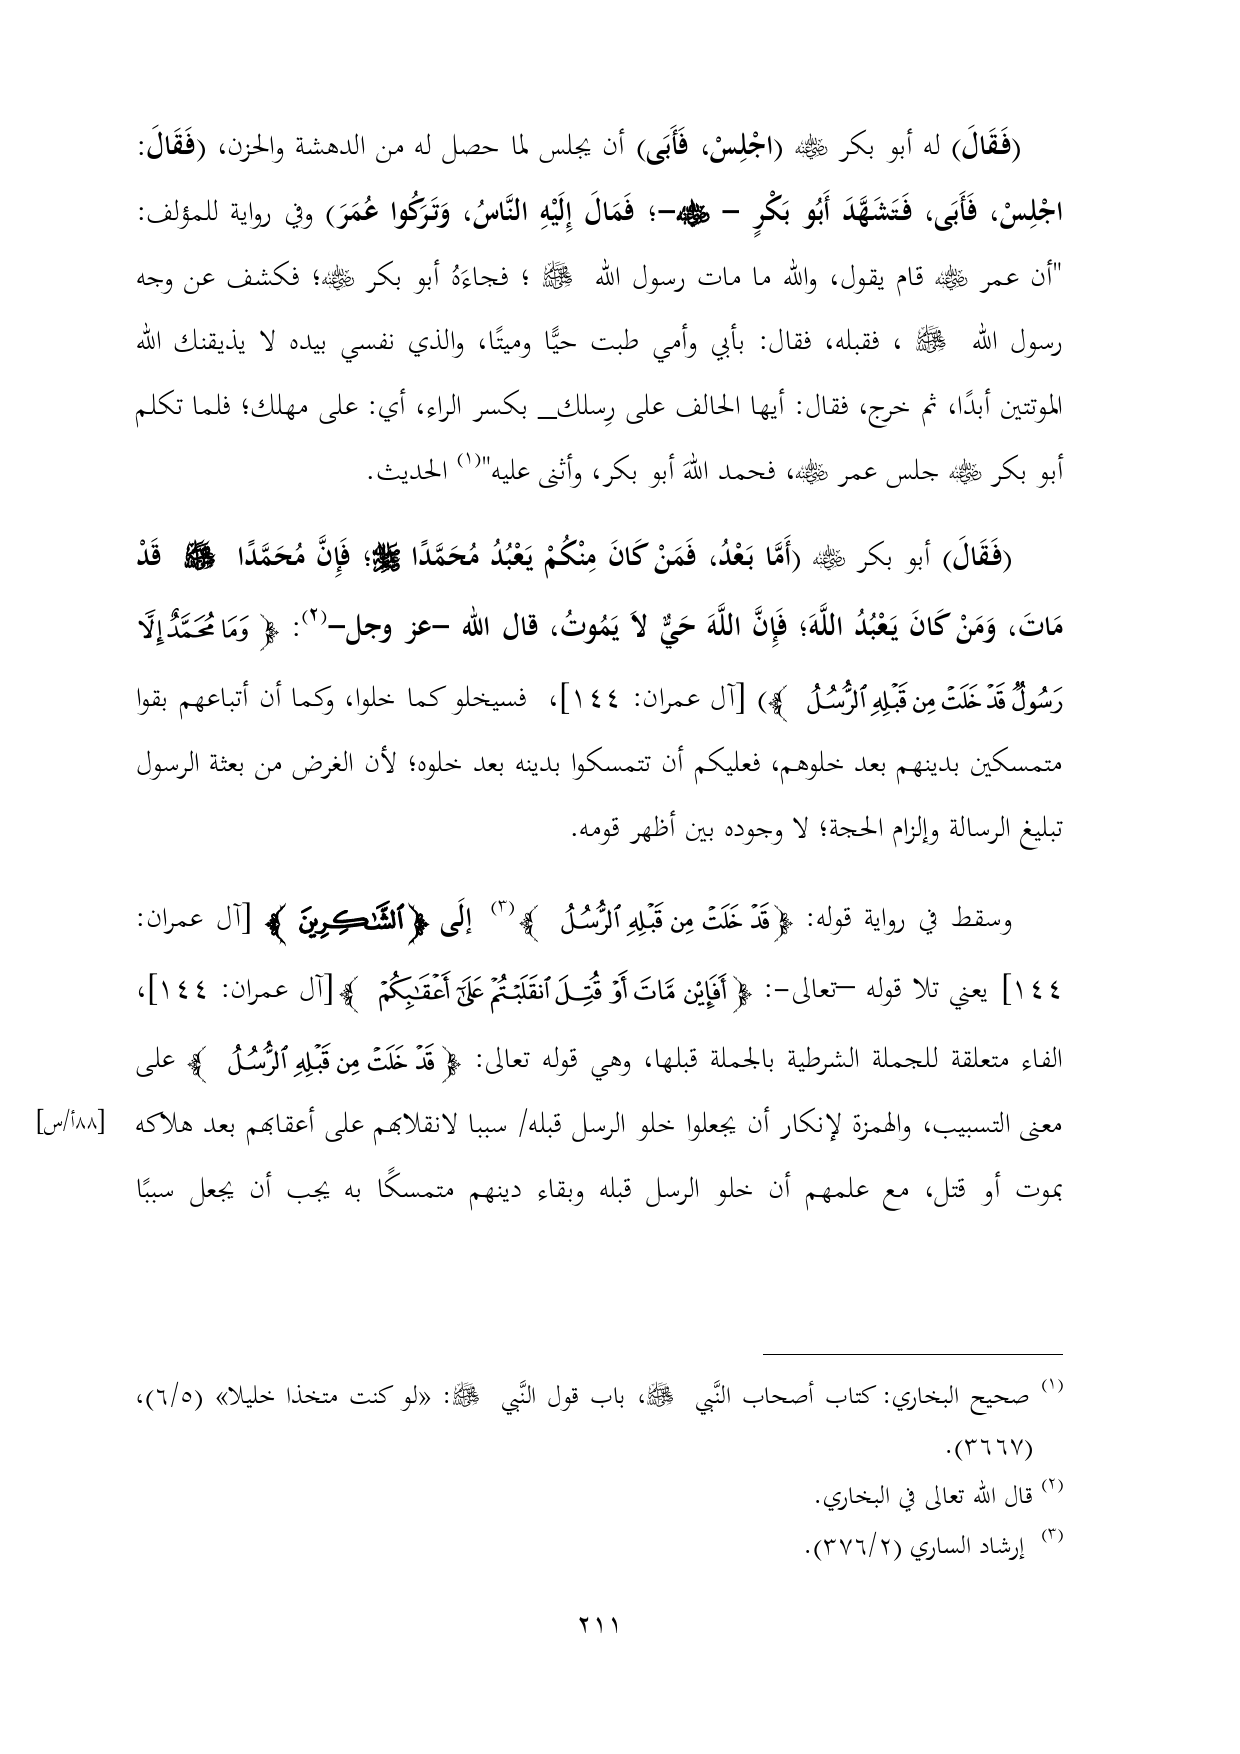 (فَقَالَ) له أبو بكر ﵁ (اجْلِسْ، فَأَبَى) أن يجلس لما حصل له من الدهشة والحزن، (فَقَالَ:
اجْلِسْ، فَأَبَى، فَتَشَهَّدَ أَبُو بَكْرٍ – ﵁–؛ فَمَالَ إِلَيْهِ النَّاسُ، وَتَرَكُوا عُمَرَ) وفي رواية للمؤلف:
"أن عمر ﵁ قام يقول، والله ما مات رسول الله ﷺ ؛ فجاءَهُ أبو بكر ﵁؛ فكشف عن وجه
رسول الله ﷺ ، فقبله، فقال: بأبي وأمي طبت حيًّا وميتًا، والذي نفسي بيده لا يذيقنك الله
الموتتين أبدًا، ثم خرج، فقال: أيها الحالف على رِسلك_ بكسر الراء، أي: على مهلك؛ فلما تكلم
أبو بكر ﵁ جلس عمر ﵁، فحمد اللهَ أبو بكر، وأثنى عليه"(١) الحديث.
(فَقَالَ) أبو بكر ﵁ (أَمَّا بَعْدُ، فَمَنْ كَانَ مِنْكُمْ يَعْبُدُ مُحَمَّدًا ﷺ؛ فَإِنَّ مُحَمَّدًا ﷺ قَدْ
مَاتَ، وَمَنْ كَانَ يَعْبُدُ اللَّهَ؛ فَإِنَّ اللَّهَ حَيٌّ لاَ يَمُوتُ، قال الله –عز وجل–(٢): ﴿ وَمَا مُحَمَّدٌ إِلَّا
رَسُولٌ قَدْ خَلَتْ مِن قَبْلِهِ ٱلرُّسُلُ ﴾) [آل عمران: ١٤٤]، فسيخلو كما خلوا، وكما أن أتباعهم بقوا
متمسكين بدينهم بعد خلوهم، فعليكم أن تتمسكوا بدينه بعد خلوه؛ لأن الغرض من بعثة الرسول
تبليغ الرسالة وإلزام الحجة؛ لا وجوده بين أظهر قومه.
وسقط في رواية قوله: ﴿ قَدْ خَلَتْ مِن قَبْلِهِ ٱلرُّسُلُ ﴾(٣) إلَى ﴿ ٱلشَّٰكِرِينَ ﴾ [آل عمران:
١٤٤] يعني تلا قوله –تعالى–: ﴿ أَفَإِيْن مَّاتَ أَوْ قُتِلَ ٱنقَلَبْتُمْ عَلَىٰٓ أَعْقَٰبِكُمْ ﴾[آل عمران: ١٤٤]،
الفاء متعلقة للجملة الشرطية بالجملة قبلها، وهي قوله تعالى: ﴿ قَدْ خَلَتْ مِن قَبْلِهِ ٱلرُّسُلُ ﴾ على
معنى التسبيب، والهمزة لإنكار أن يجعلوا خلو الرسل قبله/ سببا لانقلابهم على أعقابهم بعد هلاكه [٨٨أ/س]
بموت أو قتل، مع علمهم أن خلو الرسل قبله وبقاء دينهم متمسكًا به يجب أن يجعل سببًا
(١) صحيح البخاري: كتاب أصحاب النَّبي ﷺ، باب قول النَّبي ﷺ: «لو كنت متخذا خليلا» (٦/٥)،
(٣٦٦٧).
(٢) قال الله تعالى في البخاري.
(٣) إرشاد الساري (٣٧٦/٢).
٢١١